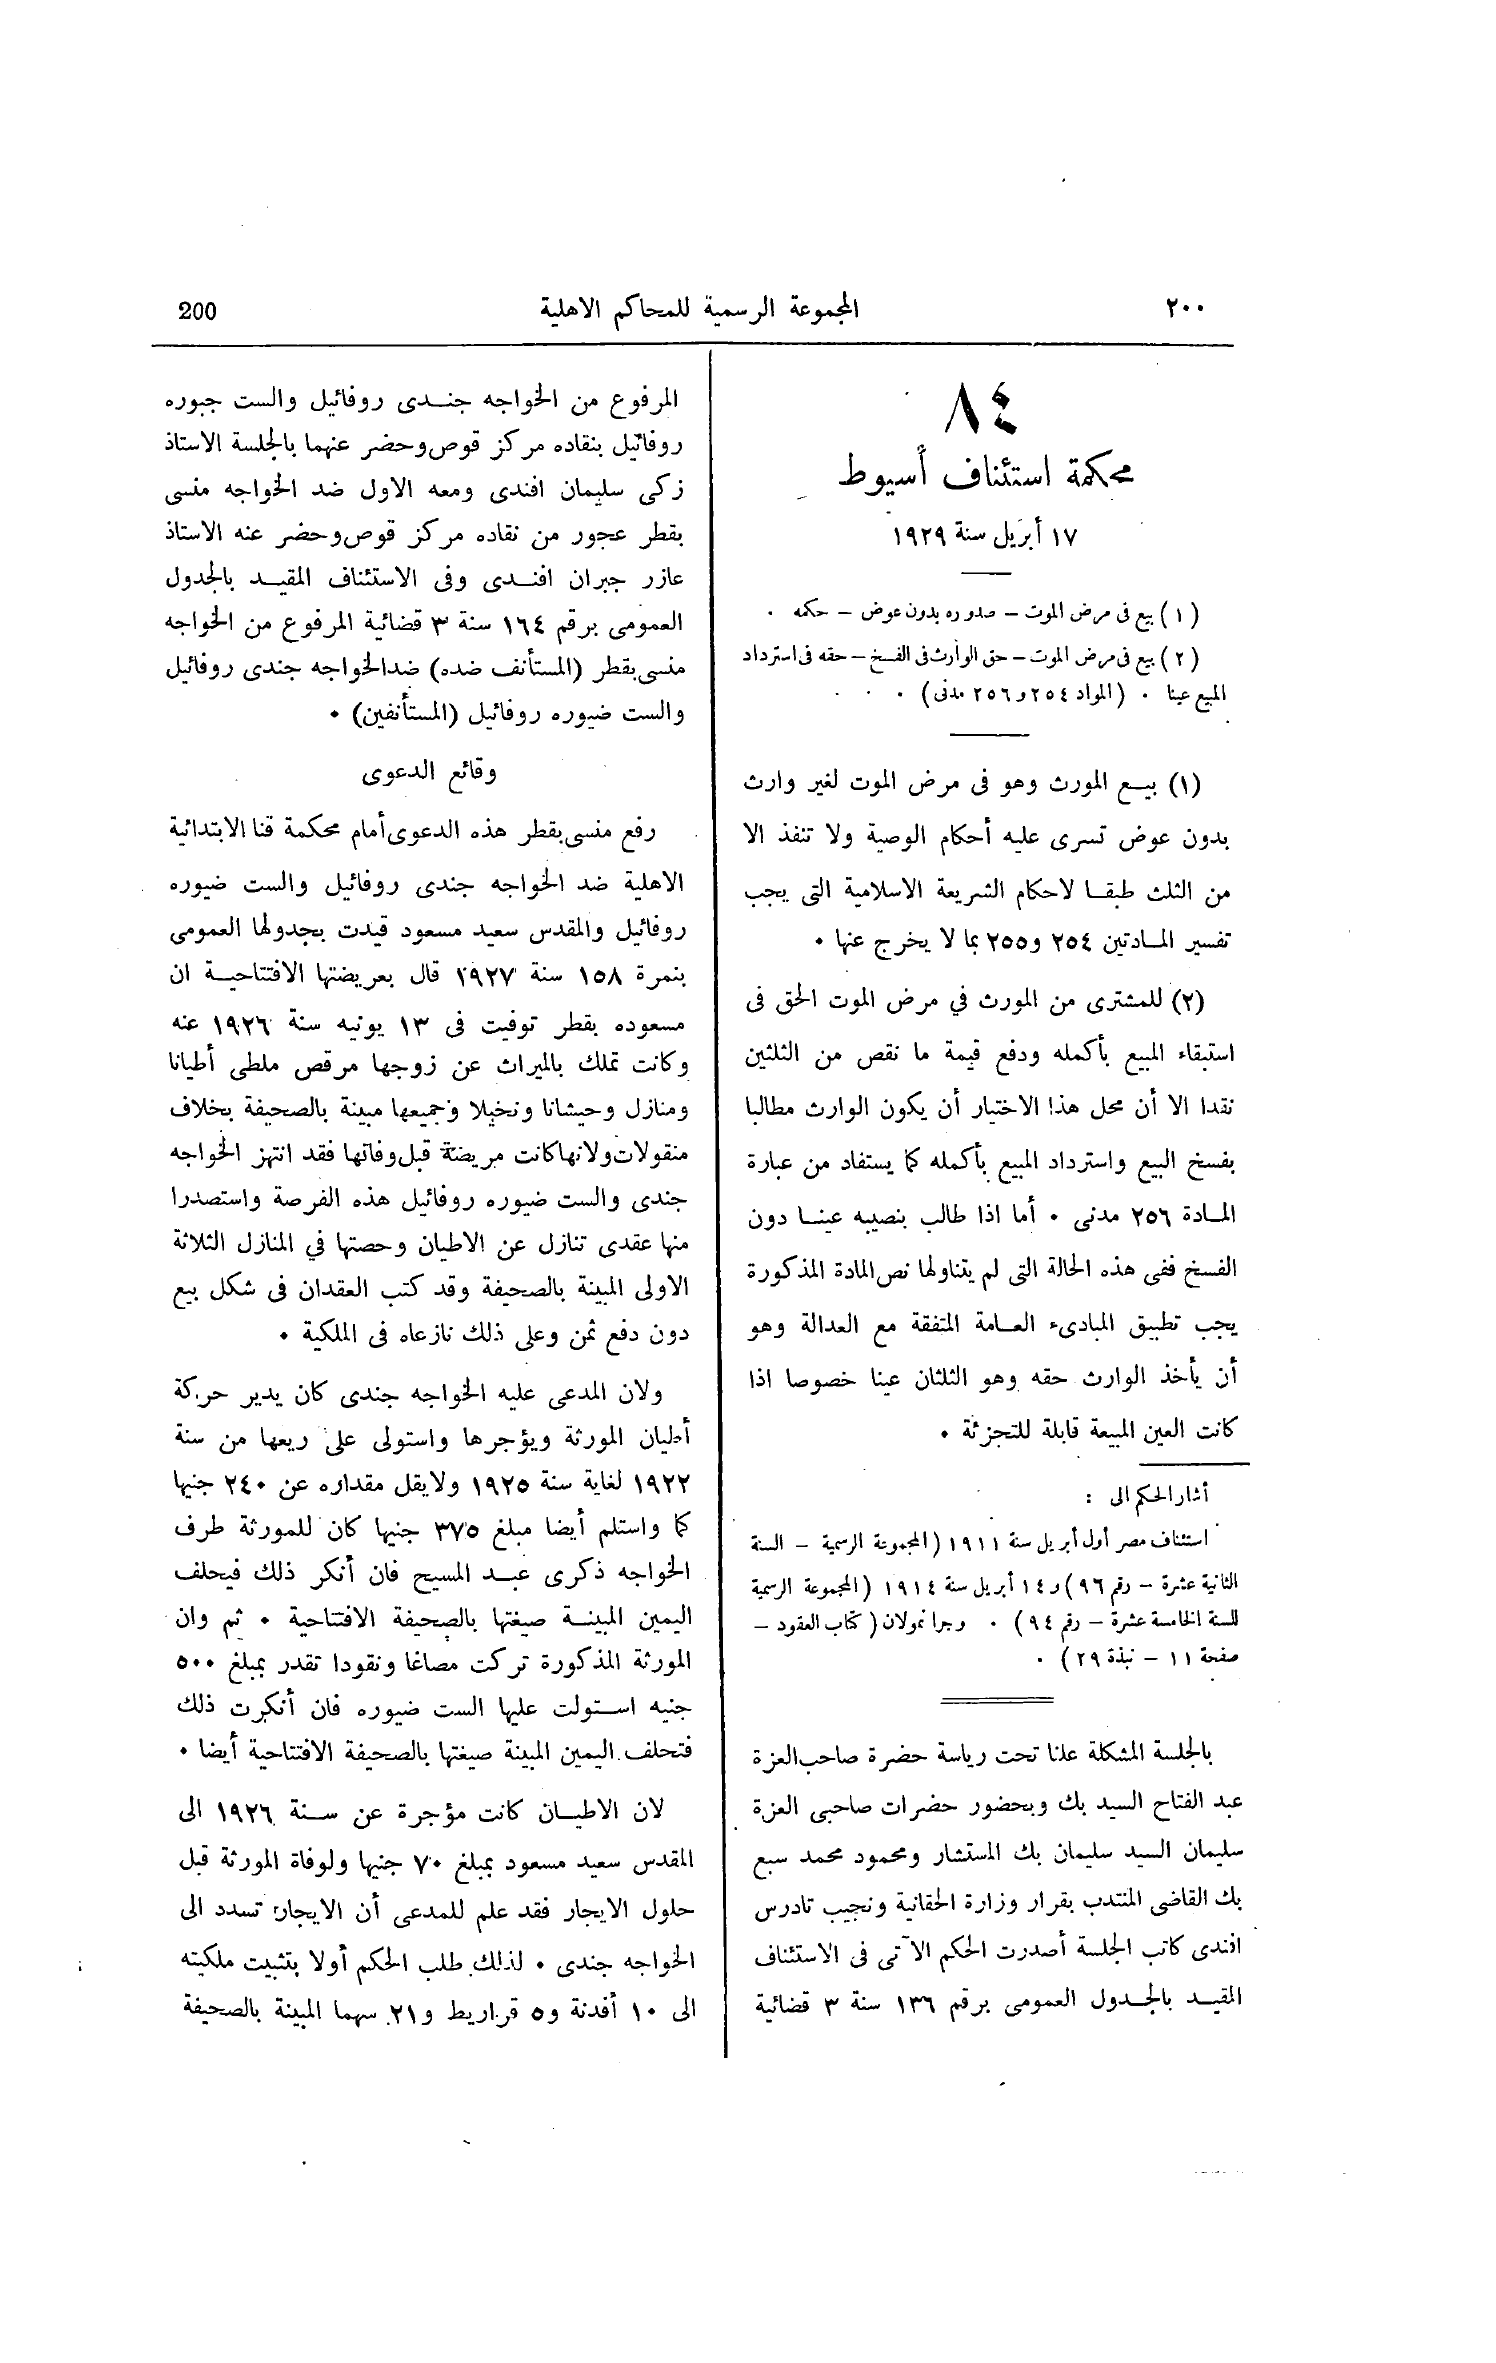 ٢٠٠
المجموعة الرسمية للمحاكم الاهلية
200
٨٤
محكمة استئناف أسيوط
١٧ أبريل سنة ١٩٢٩
(١) بيع فى مرض الموت – صدوره بدون عوض – حكمه ٠
(٢) بيع فى مرض الموت – حق الوارث فى الفسخ – حقه فى استرداد
المبيع عينا ٠ (المواد ٢٥٤ و٢٥٦ مدنى) ٠
(١) بيع المورث وهو فى مرض الموت لغير وارث
بدون عوض تسرى عليه أحكام الوصية ولا تنفذ الا
من الثلث طبقا لاحكام الشريعة الاسلامية التى يجب
تفسير المادتين ٢٥٤ و٢٥٥ بما لا يخرج عنها ٠
(٢) للمشترى من المورث في مرض الموت الحق فى
استبقاء المبيع بأكمله ودفع قيمة ما نقص من الثلثين
نقدا الا أن محل هذا الاختيار أن يكون الوارث مطالبا
بفسخ البيع واسترداد المبيع بأكمله كما يستفاد من عبارة
المادة ٢٥٦ مدنى ٠ أما اذا طالب بنصيبه عينا دون
الفسخ ففى هذه الحالة التى لم يتناولها نص المادة المذكورة
يجب تطبيق المبادىء العامة المتفقة مع العدالة وهو
أن يأخذ الوارث حقه وهو الثلثان عينا خصوصا اذا
كانت العين المبيعة قابلة للتجزئة ٠
أشار الحكم الى :
استئناف مصر أول أبريل سنة ١٩١١ (المجموعة الرسمية – السنة
الثانية عشرة – رقم ٩٦) و١٤ أبريل سنة ١٩١٤ (المجموعة الرسمية
للسنة الخامسة عشرة – رقم ٩٤) ٠ وجرانمولان (كتاب العقود –
صفحة ١١ – نبذة ٢٩) ٠
بالجلسة المشكلة علنا تحت رياسة حضرة صاحب العزة
عبد الفتاح السيد بك وبحضور حضرات صاحبى العزة
سليمان السيد سليمان بك المستشار ومحمود محمد سبع
بك القاضى المنتدب بقرار وزارة الحقانية ونجيب تادرس
افندى كاتب الجلسة أصدرت الحكم الآتى فى الاستئناف
المقيد بالجدول العمومى برقم ١٣٦ سنة ٣ قضائية
المرفوع من الخواجه جندى روفائيل والست جبوره
روفائيل بنقاده مركز قوص وحضر عنهما بالجلسة الاستاذ
زكى سليمان افندى ومعه الاول ضد الخواجه منسى
بقطر عجور من نقاده مركز قوص وحضر عنه الاستاذ
عازر جبران افندى وفى الاستئناف المقيد بالجدول
العمومى برقم ١٦٤ سنة ٣ قضائية المرفوع من الخواجه
منسى بقطر (المستأنف ضده) ضد الخواجه جندى روفائيل
والست ضيوره روفائيل (المستأنفين) ٠
وقائع الدعوى
رفع منسى بقطر هذه الدعوى أمام محكمة قنا الابتدائية
الاهلية ضد الخواجه جندى روفائيل والست ضيوره
روفائيل والمقدس سعيد مسعود قيدت بجدولها العمومى
بنمرة ١٥٨ سنة ١٩٢٧ قال بعريضتها الافتتاحية ان
مسعوده بقطر توفيت فى ١٣ يونيه سنة ١٩٢٦ عنه
وكانت تملك بالميراث عن زوجها مرقص ملطى أطيانا
ومنازل وحيشانا ونخيلا وجميعها مبينة بالصحيفة بخلاف
منقولات ولانها كانت مريضة قبل وفاتها فقد انتهز الخواجه
جندى والست ضيوره روفائيل هذه الفرصة واستصدرا
منها عقدى تنازل عن الاطيان وحصتها في المنازل الثلاثة
الاولى المبينة بالصحيفة وقد كتب العقدان فى شكل بيع
دون دفع ثمن وعلى ذلك نازعاه فى الملكية ٠
ولان المدعى عليه الخواجه جندى كان يدير حركة
أطيان المورثة ويؤجرها واستولى على ريعها من سنة
١٩٢٢ لغاية سنة ١٩٢٥ ولا يقل مقداره عن ٢٤٠ جنيها
كما واستلم أيضا مبلغ ٣٧٥ جنيها كان للمورثة طرف
الخواجه ذكرى عبد المسيح فان أنكر ذلك فيحلف
اليمين المبينة صيغتها بالصحيفة الافتتاحية ٠ ثم وان
المورثة المذكورة تركت مصاغا ونقودا تقدر بمبلغ ٥٠٠
جنيه استولت عليها الست ضيوره فان أنكرت ذلك
فتحلف اليمين المبينة صيغتها بالصحيفة الافتتاحية أيضا ٠
لان الاطيان كانت مؤجرة عن سنة ١٩٢٦ الى
المقدس سعيد مسعود بمبلغ ٧٠ جنيها ولوفاة المورثة قبل
حلول الايجار فقد علم للمدعى أن الايجار تسدد الى
الخواجه جندى ٠ لذلك طلب الحكم أولا بتثبيت ملكيته
الى ١٠ أفدنة و٥ قراريط و٢١ سهما المبينة بالصحيفة